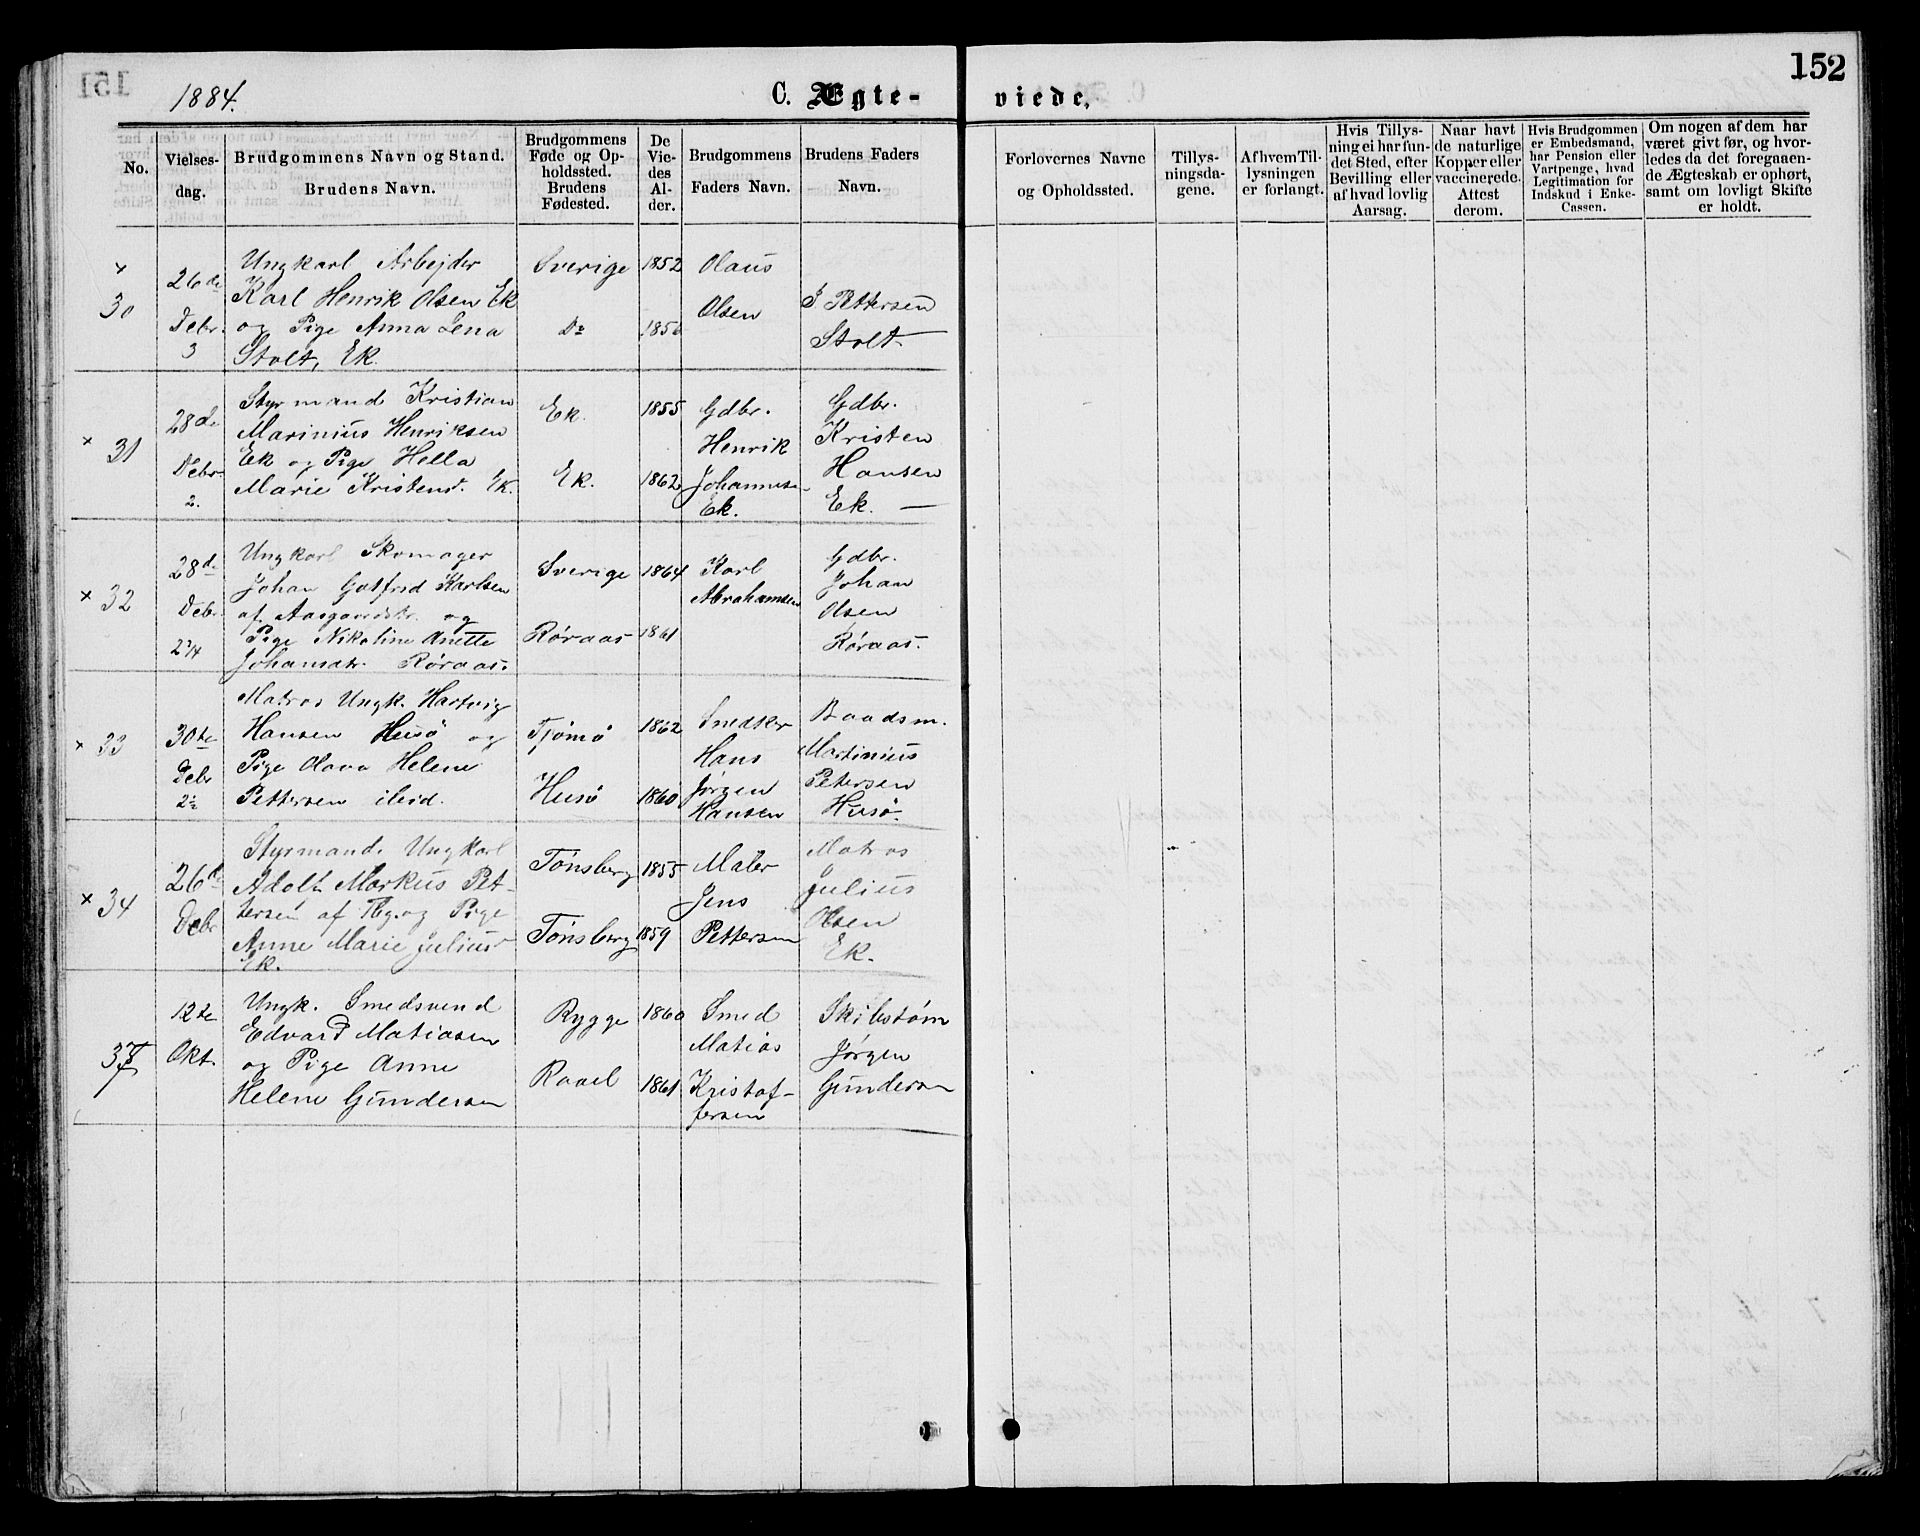 152
1884.
C. Ægte-
viede,
No.
Vielses-
dag.
Brudgommens Navn og Stand.
Brudens Navn.
Brudgommens
Føde og Op-
holdssted.
Brudens
Fødested.
De
Vie-
des
Al-
der.
Brudgommens
Faders Navn.
Brudens Faders
Navn.
Forlovernes Navne
og Opholdssted.
Tillys-
ningsda-
gene.
Af hvem Til-
lysningen
er forlangt.
Hvis Tillys-
ning ei har fun-
det Sted, efter
Bevilling eller
af hvad lovlig
Aarsag.
Naar havt
de naturlige
Kopper eller
vaccinerede.
Attest
derom.
Hvis Brudgommen
er Embedsmand,
har Pension eller
Vartpenge, hvad
Legitimation for
Indskud i Enke-
Cassen.
Om nogen af dem har
været givt før, og hvor-
ledes da det foregaaen-
de Ægteskab er ophørt,
samt om lovligt Skifte
er holdt.
30
26de
Debr.
3
Ungkarl Arbejder
Karl Henrik Olsen Ek
og Pige Anna Lena
Stolt, Ek.
Sverige
Do
1852
Olaus
Olsen
Pettersen
Stolt
× 31
28de
Debr.
2.
Styrmand Kristian
Marinius Henriksen
Ek og Pige Hella
Marie Kristensd. Ek.
Ek.
Ek.
1855
1862
Gdbr.
Henrik
Johannesen
Ek.
Gdbr.
Kristen
Hansen
Ek. —
× 32
28de
Debr
Ungkarl Skomager
Johan Gotfrid Karlsen
af Aasgaardstr. og
Pige Nikoline Anette
Johansdtr. Røraas.
Sverige
Røraas
1864
1861
Karl
Abrahamsen
Gdbr.
Johan
Olsen
Røraas.
× 33
30te
Debr
Matros Ungk. Hartvig
Hansen Husö og
Pige Olava Helene
Pettersen ibid.
Tjömö
Husö
1862
1860
Snedker
Hans
Jørgen
Hansen
Baadsm.
Martinius
Petersen
Husö.
× 34
26de
Debr
Styrmand. Ungkarl
Adolf Markus Pet-
tersen af Tbg. og Pige
Anne Marie Julius
Ek.
Tönsberg
Tönsberg
1855
1859
Maler
Jens
Pettersen
Matros
Julius
Olsen
Ek.
12te
Okt.
Ungk. Smedsvend
Edvard Matiasen
og Pige Anne
Helene Gundersen
Rygge
Raael
1860
1861
Smed
Matias
Kristof-
fersen
Skibstøm
Jørgen
Gundersen